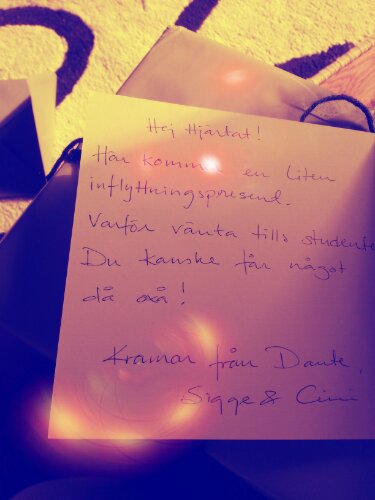 Hej Hjärtat!
Här kommer en liten
inflyttningspresent.
Varför vänta tills studenten
Du kanske får något
då oxå!
Kramar från Dante,
Sigge & Cini